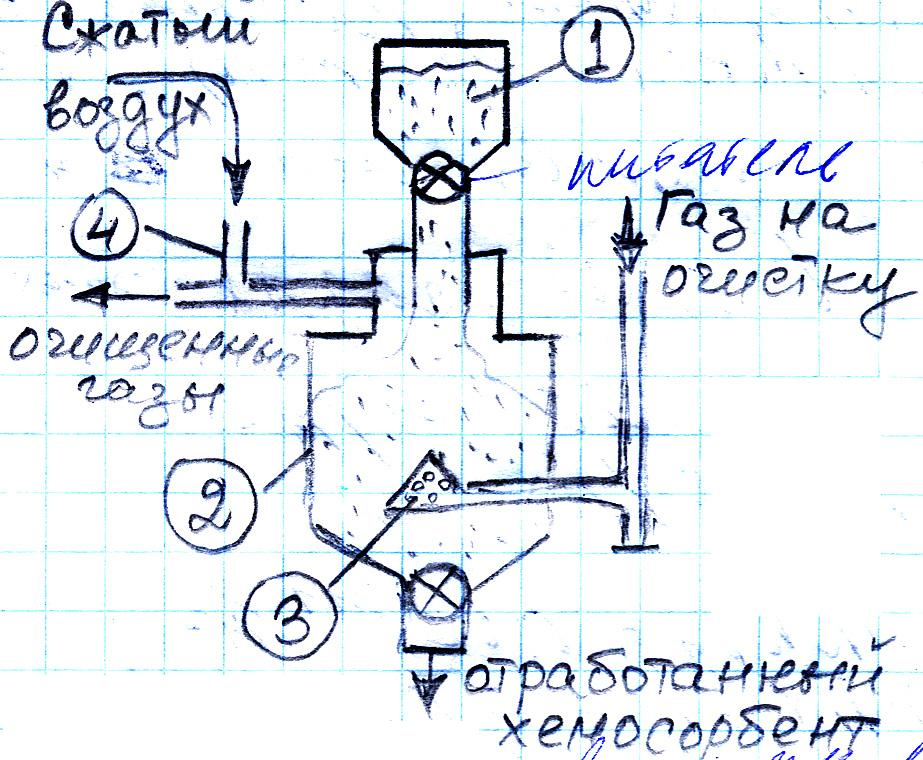 Сжатый
воздух
1
питатель
4
Газ на
очистку
очищенные
газы
2
3
отработанный
хемосорбент